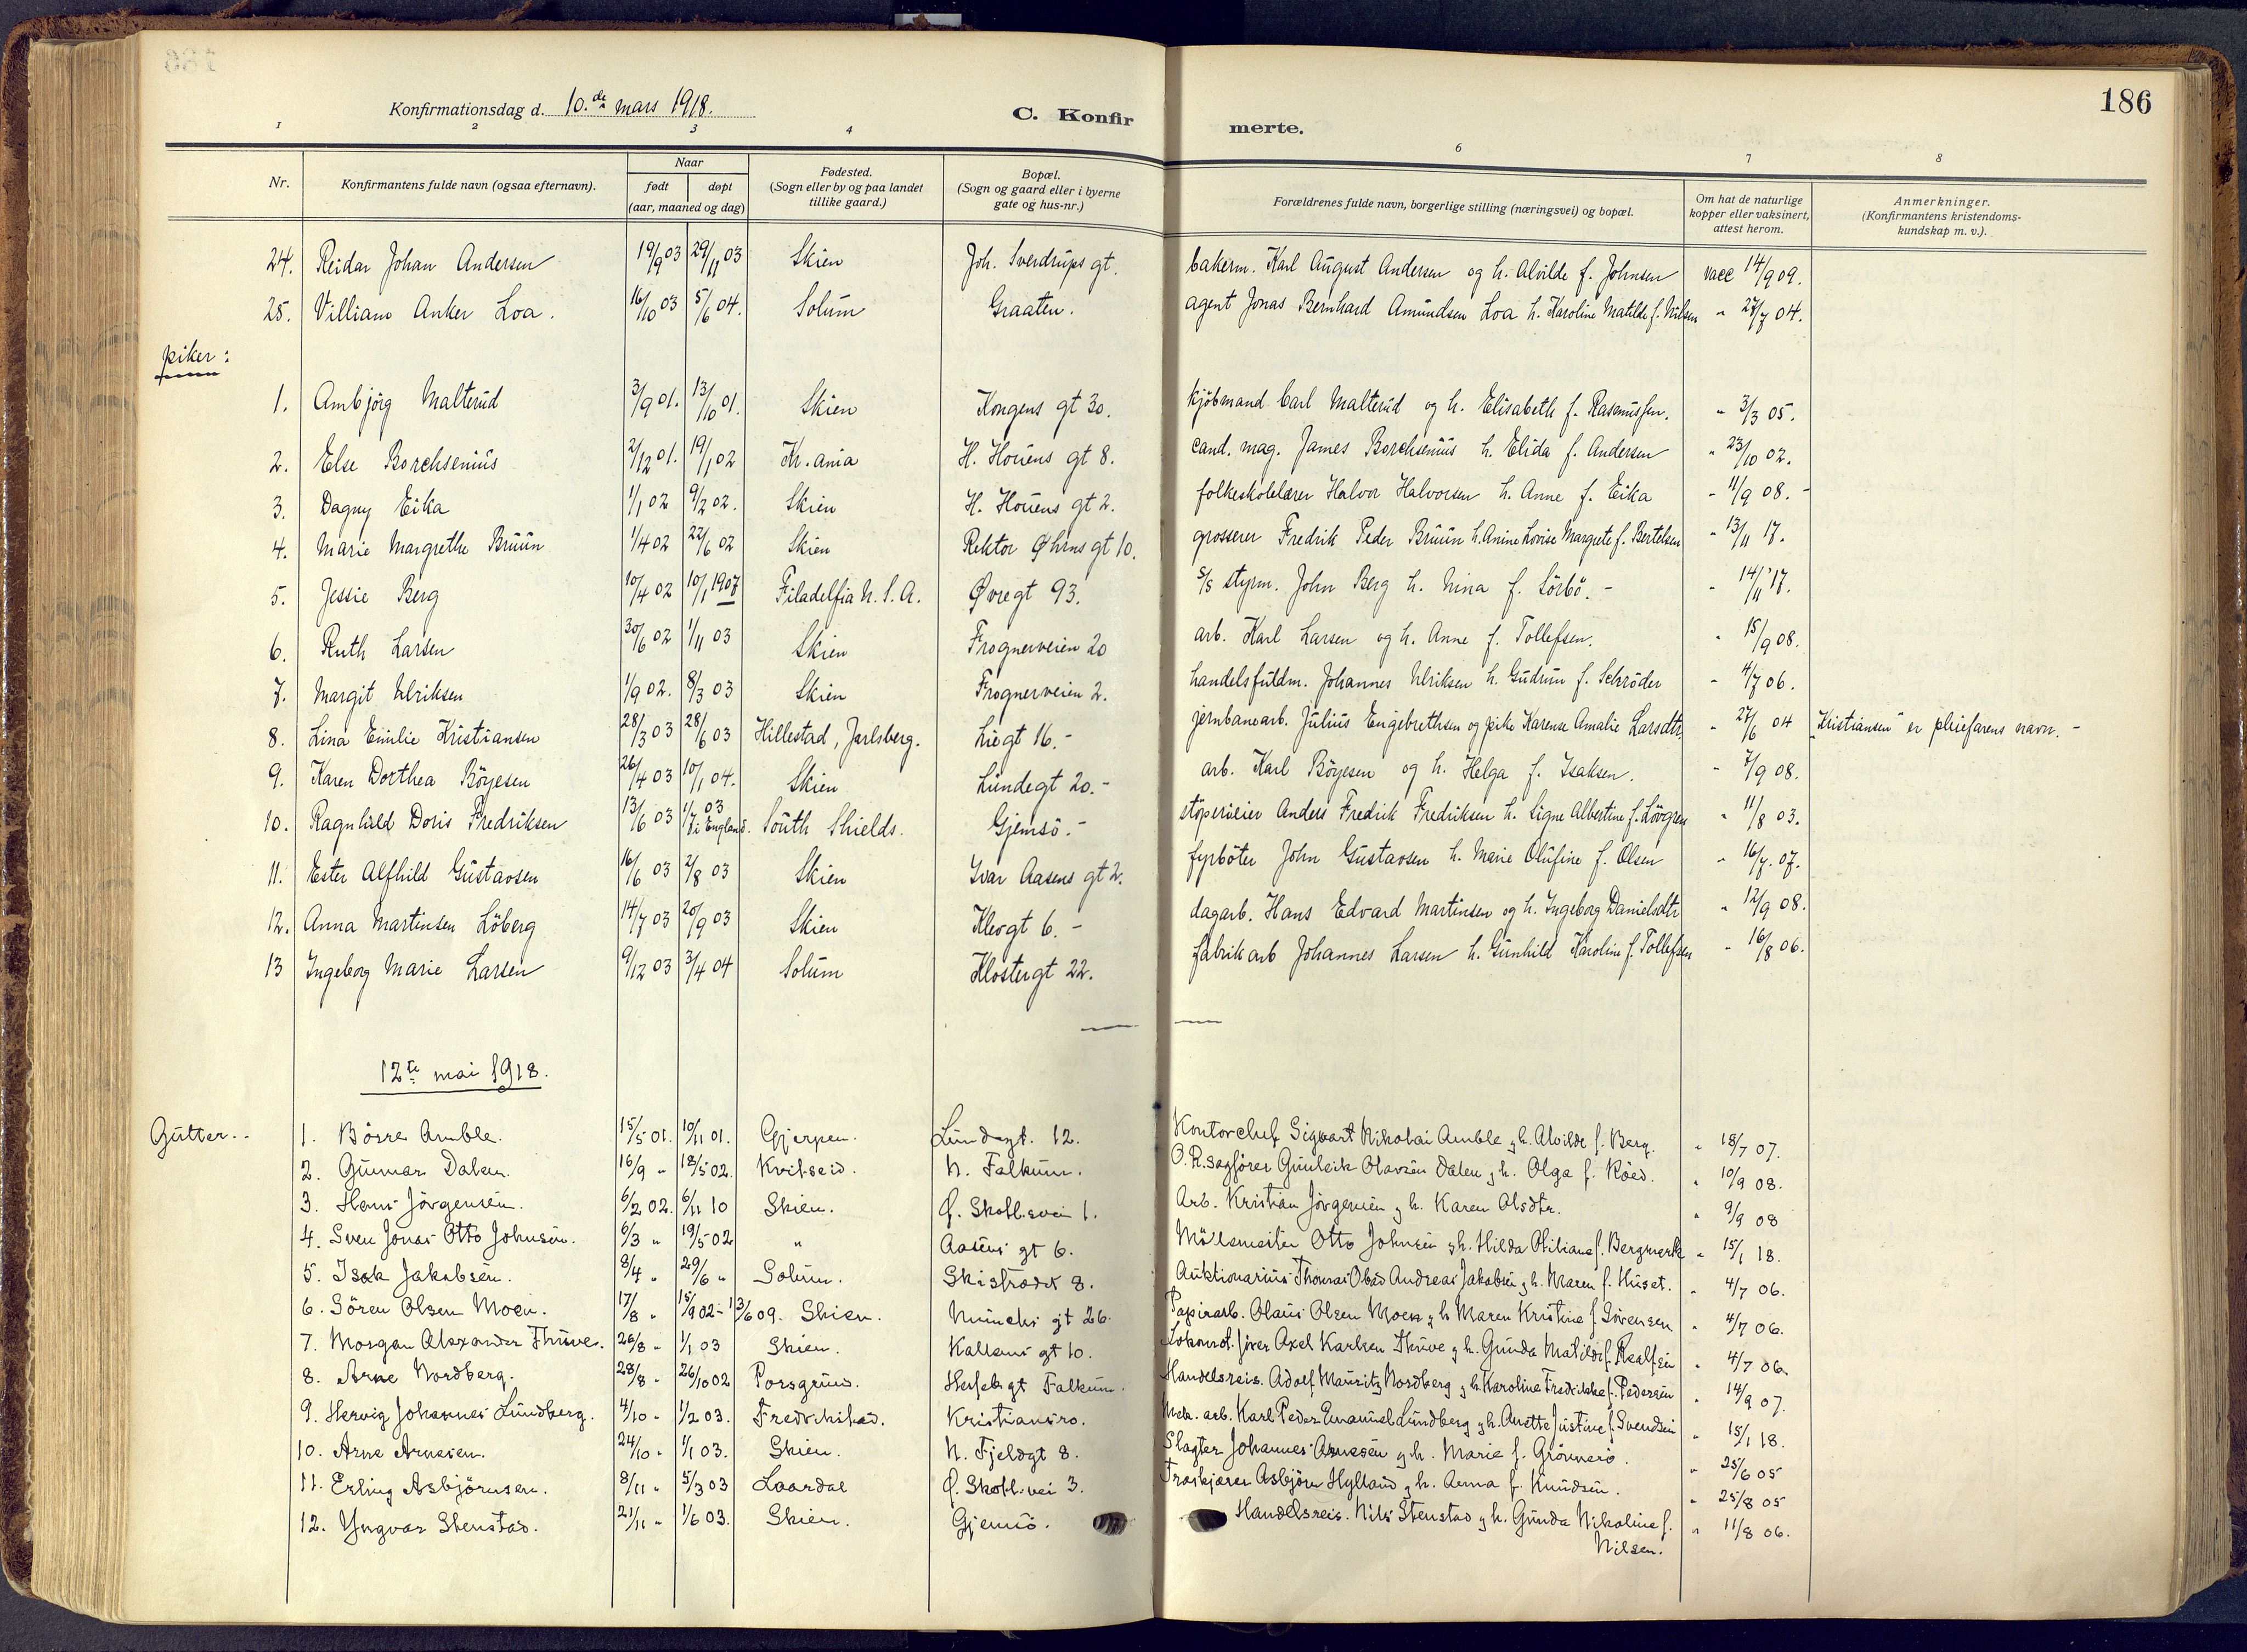 186
Konfirmationsdag d. 10.de mars 1918.
C. Konfirmerte.
1 2 3 4 6 7 8
Nr. Konfirmantens fulde navn (ogsaa efternavn). Naar født døpt (aar, maaned og dag) Fødested. (Sogn eller by og paa landet tillike gaard.) Bopæl. (Sogn og gaard eller i byerne gate og hus-nr.) Forældrenes fulde navn, borgerlige stilling (næringsvei) og bopæl. Om hat de naturlige kopper eller vaksinert, attest herom. Anmerkninger. (Konfirmantens kristendoms-kundskap m. v.).
24. Reidar Johan Andersen 19/9 03 29/11 03 Skien Joh. Sverdrups gt. bakerm. Karl August Andersen og h. Alvilde f. Johnsen vacc 14/9 09.
25. Villiam Anker Loa. 16/10 03 5/6 04. Solum Graaten. agent Jonas Bernhard Amundsen Loa h. Karoline Matilde f. Nilsen " 27/7 04.
piker:
1. Ambjörg Malterud 3/9 01. 13/10 01. Skien Kongens gt 30. kjöbmand Carl Malterud og h. Elisabeth f. Rasmussen. " 3/3 05.
2. Else Borchsenius 2/12 01. 19/1 02 Kr.ania H. Houens gt 8. cand. mag. James Borchsenius h. Elida f. Andersen " 23/10 02.
3. Dagny Eika 1/1 02 9/2 02. Skien H. Houens gt 2. folkeskolelærer Halvor Halvorsen h. Anne f. Eika " 11/9 08. -
4. Marie Margrethe Bruun 1/4 02 22/6 02 Skien Rektor Ørns gt 10. grosserer Fredrik Peder Bruun h. Anine Lovise Margrete f. Bertelsen " 13/11 17.
5. Jessie Berg 10/4 02 10/1 1907 Filadelfia U.S.A. Øvregt 93. S/S styrm. John Berg h. Nina f. Sörbö. - " 14/11 '17.
6. Ruth Larsen 30/6 02 1/11 03 Skien Frognerveien 20 arb. Karl Larsen og h. Anne f. Tollefsen. " 15/9 08.
7. Margit Ulriksen 1/9 02. 8/3 03 Skien Frognerveien 2. handelsfuldm. Johannes Ulriksen h. Gudrun f. Schröder " 4/7 06.
8. Lina Emilie Kristiansen 28/3 03 28/6 03 Hillestad, Jarlsberg. Liegt 16.- jernbanearb. Julius Engebrethsen og pike Karense Amalie Larsdtr. " 27/6 04 "Kristiansen" er pleiefarens navn. -
9. Karen Dorthea Böyesen 26/4 03 10/1 04. Skien Lundegt 20.- arb. Karl Böyesen og h. Helga f. Isaksen. " 7/9 08.
10. Ragnhild Doris Fredriksen 13/6 03 1/7 03 i England. South Shields. Gjemsö.- stöperieier Anders Fredrik Fredriksen h. Signe Albertine f. Lövgren " 11/8 03.
11. Ester Alfhild Gustavsen 16/6 03 2/8 03 Skien Ivar Aasens gt 2. fyrböter John Gustavsen h. Marie Olufine f. Olsen " 16/7. 07.
12. Anna Martinsen Löberg 14/7 03 20/9 03 Skien Klevgt 6. - dagarb. Hans Edvard Martinsen og h. Ingeborg Danielsdtr " 12/9 08.
13 Ingeborg Marie Larsen 9/12 03 3/4 04 Solum Klostergt 22. fabrikarb Johannes Larsen h. Gunhild Karoline f. Tollefsen " 16/8 06.
12te mai 1918.
Gutter..
1. Börre Amble. 15/5 01. 10/11 01. Gjerpen. Lundegt. 12. Kontorchef Sigvart Nikolai Amble og h. Alvilde f. Berg. " 18/7 07.
2. Gunnar Dalen. 16/9 " 18/5 02. Kvitseid. N. Falkum. O.R.sagförer Gunleik Olavsen Dalen og h. Olga f. Röed. " 10/9 08.
3. Hans Jörgensen. 6/2 02. 6/11 10 Skien. Ø. Skotl.svei 1. Arb. Kristian Jörgensen og h. Karen Olsdtr. " 9/9 08
4. Sven Jonas Otto Johnsen. 6/3 " 19/5 02 " Aasens gt 6. Mölsmester Otto Johnsen og h. Hilda Otiliana f. Bergmerk " 15/1 18.
5. Isak Jakobsen. 8/4 " 29/6 " Solum. Skistredet 8. Auktionarius Thomas Obed Andreas Jakobsen og h. Maren f. Huset. " 4/7 06.
6. Sören Olsen Moen. 17/8 " 15/9 02 - 13/6 09. Skien. Munchs gt 26. Papirarb. Olaus Olsen Moen og h Maren Kristine f. Sörensen " 4/7 06.
7. Morgan Alexander Thuve. 26/8 " 1/1 03 Skien. Kallens gt 10. Lokomot.förer Axel Karlsen Thuve og h. Gunda Matilde f. Realfsen " 4/7 06.
8. Arne Nordberg. 28/8 " 26/10 02 Porsgrund. Herseb.gt Falkum. Handelsreis. Adolf Mauritz Nordberg og h. Karoline Fredrikke f. Pedersen " 14/9 07.
9. Hervig Johannes Lundberg. 4/10 " 1/2 03. Fredrikstad. Kristiansro. Mek. arb. Karl Peder Emanuel Lundberg og h. Anette Justine f. Svendsen " 15/1 18.
10. Arne Arnesen. 24/10 " 1/1 03. Skien. N. Fjeldgt 8. Slagter Johannes Arnesen og h. Marie f. Grönnerö. " 25/6 05
11. Erling Asbjörnsen. 8/11 " 5/3 03 Laardal Ø. Skotl.vei 3. Træskjærer Asbjörn Hylland og h. Anna f. Knudsen. " 25/8 05
12. Yngvar Stenstad. 21/11 " 1/6 03. Skien. Gjemsö. Handelsreis. Nils Stenstad og h. Gunda Nikoline f. " 11/8 06.
Nilsen.